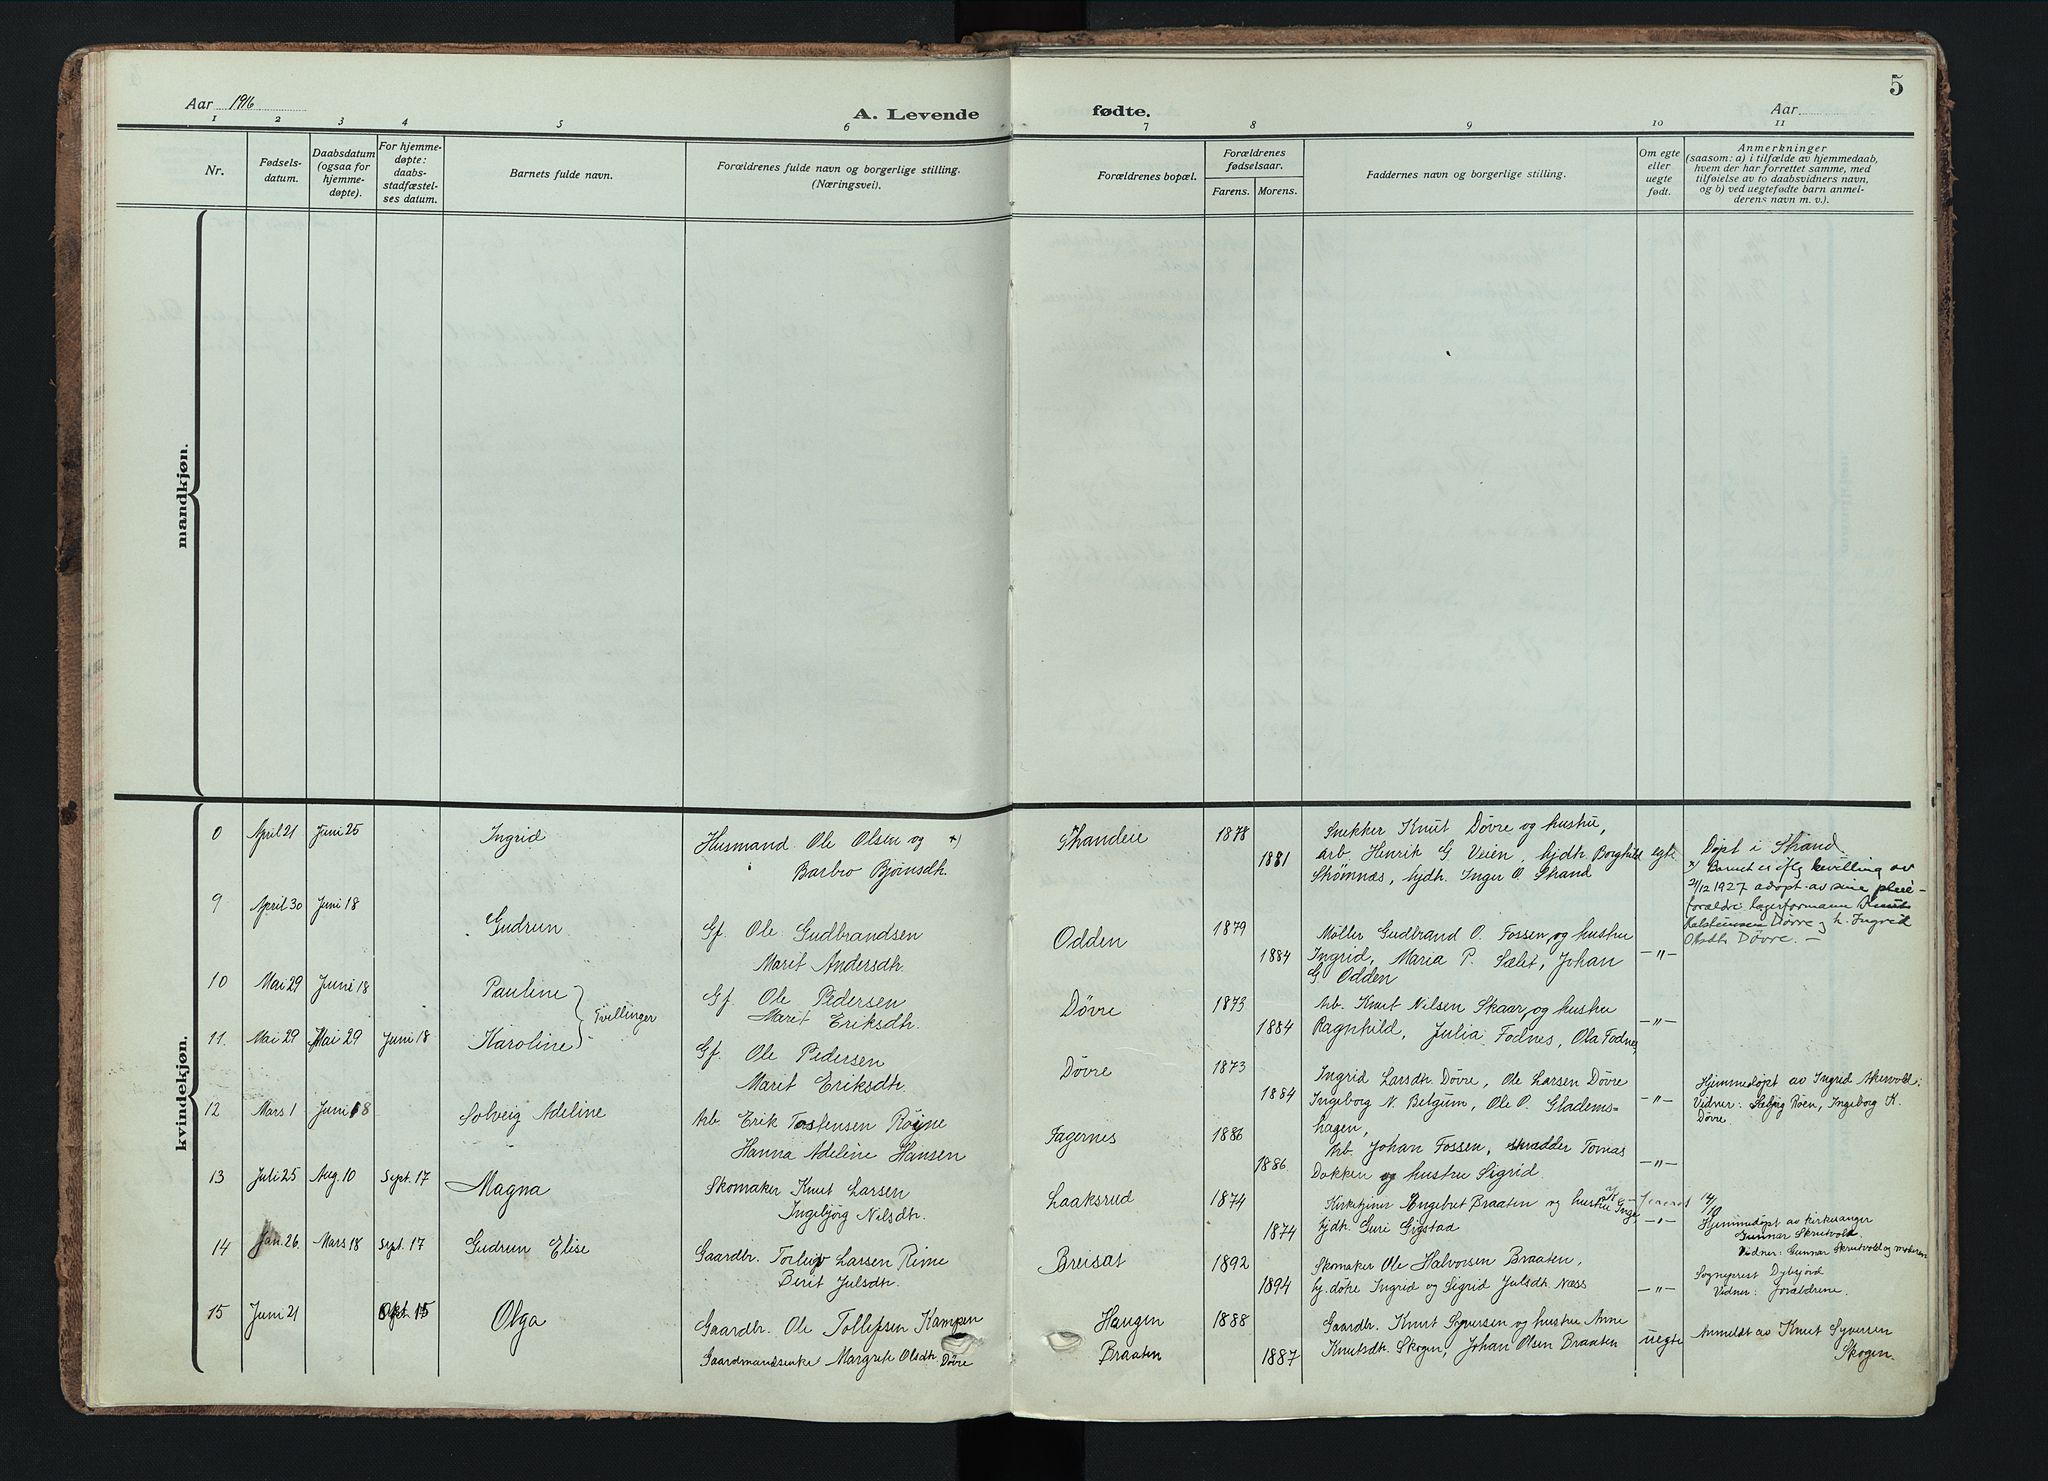 5
Aar 1916
A. Levende fødte.
Aar
1 2 3 4 5 6 7 8 9 10 11
Nr.
Fødsels-
datum.
Daabsdatum
(ogsaa for
hjemme-
døpte).
For hjemme-
døpte:
daabs-
stadfæstel-
ses datum.
Barnets fulde navn.
Forældrenes fulde navn og borgerlige stilling.
(Næringsvei).
Forældrenes bopæl.
Forældrenes
fødselsaar.
Farens. Morens.
Faddernes navn og borgerlige stilling.
Om egte
eller
uegte
født.
Anmerkninger
(saasom: a) i tilfælde av hjemmedaab,
hvem der har forrettet samme, med
tilføielse av to daabsvidners navn,
og b) ved uegtefødte barn anmel-
derens navn m. v.).
mandkjøn.
kvindekjøn.
0 April 21 Juni 25 Ingrid
Husmand Ole Olsen og x)
Barbro Bjørnsdh.
1878
1881
Snekker Knut Døvre og hustru,
Arb. Henrik G. Veien, hjdh. Borghild
Strømnæs, hjdh. Inger O. Strand
egte
Døpt i Strand
x) Barnet er iflg bevilling av
21/12 1927 adopt. av sine pleie-
forældre lagerformann Knut
Halsteinsen Døvre og h. Ingrid
Olsdh Døvre. —
9 April 30 Juni 18 Gudrun
Gf. Ole Gudbrandsen
Marit Andersdh.
Odden
1879
1884
Møller Gudbrand O. Fossen og hustru
Ingrid, Maria P. Sælet, Johan
G. Odden
—"—
10 Mai 29 Juni 18 Pauline
Tvillinger
Gf. Ole Pedersen
Marit Eriksdh.
Døvre
1873
1884
Arb. Knut Nilsen Skaar og hustru
Ragnhild, Julia Fodnes, Ola Fodnes,
—"—
11. Mai 29 Mai 29 Juni 18 Karoline
Gf. Ole Pedersen
Marit Eriksdh.
Døvre
1873
1884
Ingrid Larsdh. Døvre, Ole Larsen Døvre
Ingeborg N. Belgum, Ole O. Gladems-
hagen,
—"—
Hjemmedøpt av Ingrid Akervold.
Vidner: Sebjø Roen, Ingeborg K.
Døvre.
12 Mars 1 Juni 18 Solveig Adeline
Arb. Erik Tostensen Røine
Hanna Adeline Hansen
Fagernes
1886
1886.
Arb. Johan Fossen, skrædder Tomas
Dokken og hustru Sigrid.
—"—
13 Juli 25 Aug. 10 Sept. 17 Magna
Skomaker Knut Larsen
Ingebjørg Nilsdh.
Laaksrud
1874
1874
Kirketjener Engebret Braaten og hustru Inge
hjdh. Guri Sigstad
—"—
Hjemmedøpt av kirkesanger
Gunnar Skrutvold.
Vidner: Gunnar Skrutvold og moderen
14 Jan. 26. Mars 18 Sept. 17 Gudrun Elise
Gaardbr. Torleiv Larsen Rime
Birit Julsdh.
Breisat
1892
1894
Skomaker Ole Halvorsen Braaten,
hj. døtre Ingrid og Sigrid Julsdh. Næss
—"—
Sogneprest Dybsjord
Vidner: forældrene.
15 Juni 21 Okt. 15 Olga
Gaardbr. Ole Tollefsen Kampen
Gaardmandsenke Margrete Olsdh. Døvre
Haugen
Braaten
1888
1887
Gaardbr. Knut Syversen og hustru Anne
Knutsdh. Skogen, Johan Olsen Braaten
uegte
Anmeldt av Knut Syversen
Skogen.